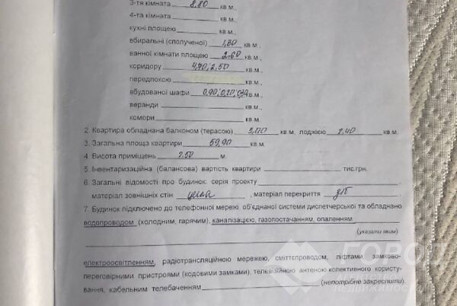 3-тя кімната 8.80 кв.м,
4-та кімната кв.м,
кухні площею кв.м,
вбиральні (сполученої) 1,80 кв.м,
ванної кімнати площею 2.60 кв.м,
коридору кв.м,
передпокою кв.м,
вбудованої шафи кв.м,
веранди кв.м,
комори кв.м,
2. Квартира обладнана балконом (терасою) кв.м, лоджією 2,40 кв.м.
3. Загальна площа квартири кв.м.
4. Висота приміщень 2.50 м.
5. Інвентаризаційна (балансова) вартість квартири тис.грн.
6. Загальні відомості про будинок: серія проекту
матеріал зовнішніх стін цегла, матеріал перекриття з/б
7. Будинок підключено до телефонної мережі об'єднаної системи диспетчерської та обладнано
водопроводом (холодним, гарячим), каналізацією, газопостачанням, опаленням
(указати яким)
електроосвітленням, радіотрансляційною мережею, сміттєпроводом, ліфтами, замково-
переговорними пристроями (кодовими замками), телевізійною антеною колективного користу-
вання, кабельним телебаченням (непотрібне закреслити)